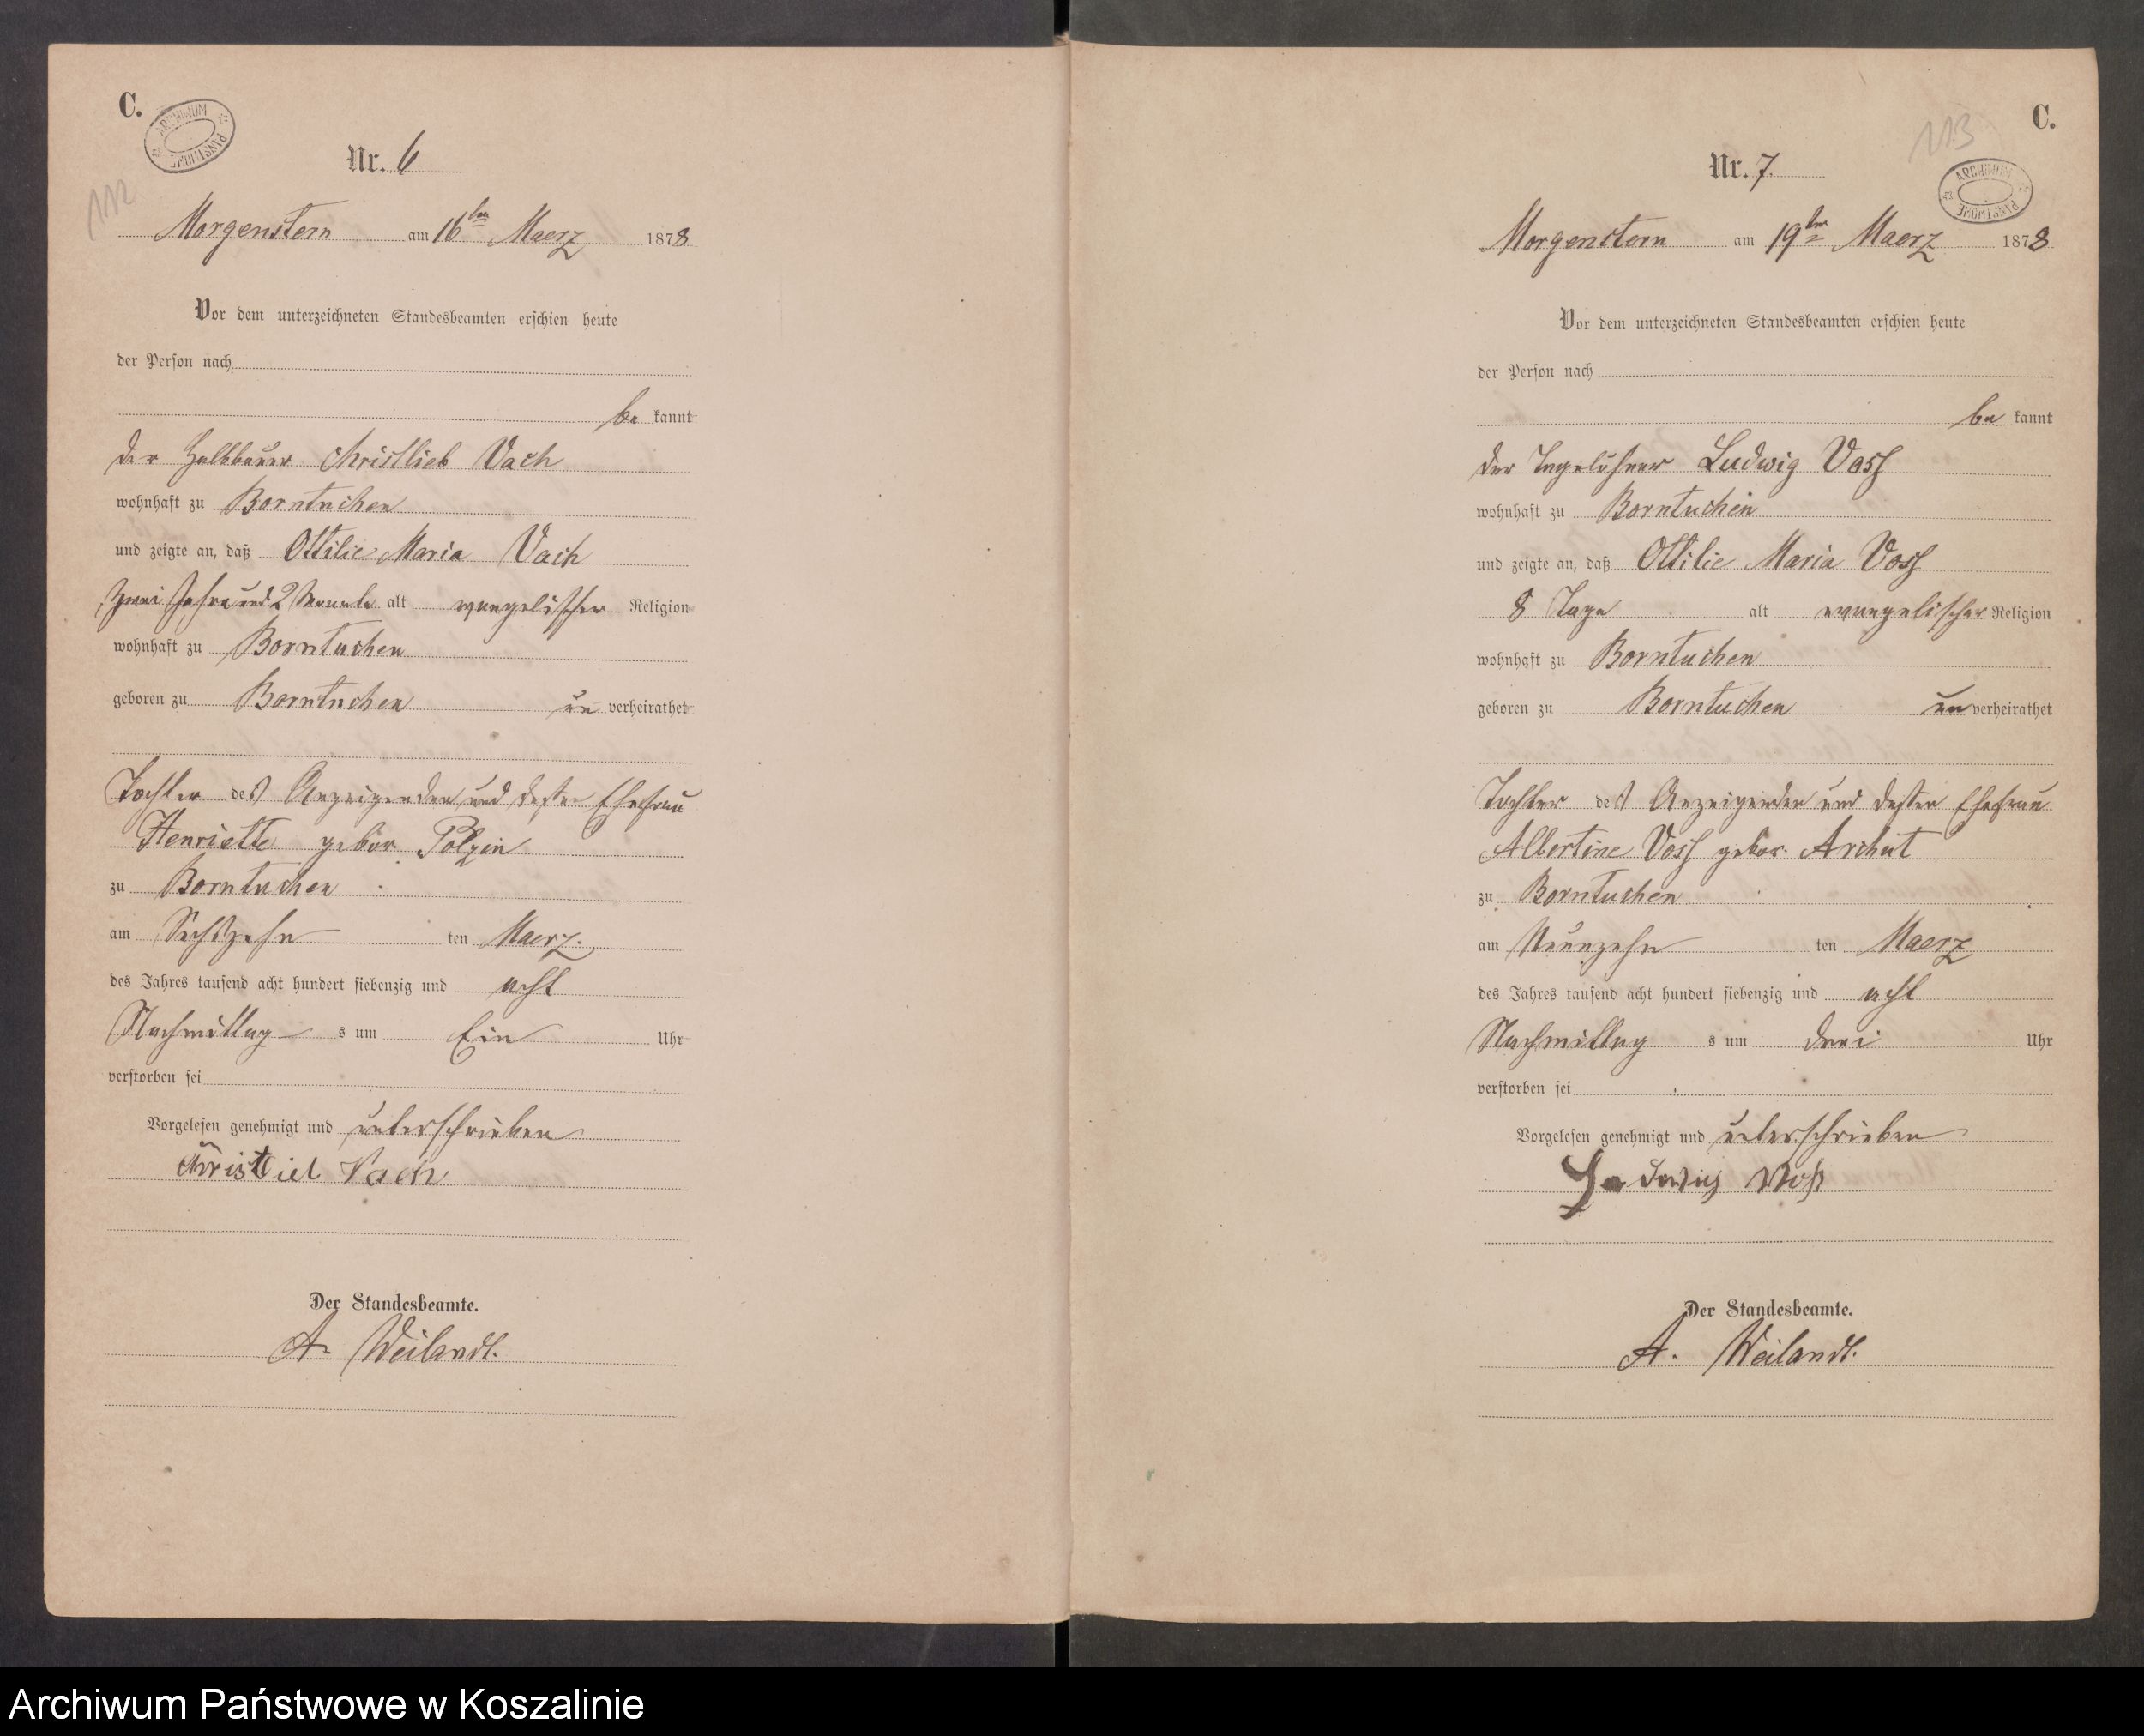 C.
ARCHIWUM PAŃSTWOWE
112
Nr. 6
Morgenstern am 16ten Maerz 1878
Vor dem unterzeichneten Standesbeamten erschien heute
der Person nach
be kannt
der Halbbauer Christlieb Vach
wohnhaft zu Borntuchen
und zeigte an, daß Ottilie Maria Vach
zwei Jahre und 2 Monate alt evangelischer Religion
wohnhaft zu Borntuchen
geboren zu Borntuchen un verheirathet
Tochter des Anzeigenden und dessen Ehefrau
Henriette gebor. Polzin
zu Borntuchen
am Sechszehn ten Maerz.
des Jahres tausend acht hundert siebenzig und acht
Nachmittag s um Ein Uhr
verstorben sei
Vorgelesen genehmigt und unterschrieben
Christliel Vach
Der Standesbeamte.
A. Weilandt.
C.
113
ARCHIWUM PAŃSTWOWE
Nr. 7.
Morgenstern am 19ten Maerz 1878
Vor dem unterzeichneten Standesbeamten erschien heute
der Person nach
be kannt
der Tagelöhner Ludwig Voss
wohnhaft zu Borntuchen
und zeigte an, daß Ottilie Maria Voss
8 Tage alt evangelischer Religion
wohnhaft zu Borntuchen
geboren zu Borntuchen un verheirathet
Tochter des Anzeigenden und dessen Ehefrau
Albertine Voss gebor. Archut
zu Borntuchen
am Neunzehn ten Maerz
des Jahres tausend acht hundert siebenzig und acht
Nachmittag s um drei Uhr
verstorben sei
Vorgelesen genehmigt und unterschrieben
Ludwig Voß
Der Standesbeamte.
A. Weilandt.
Archiwum Państwowe w Koszalinie